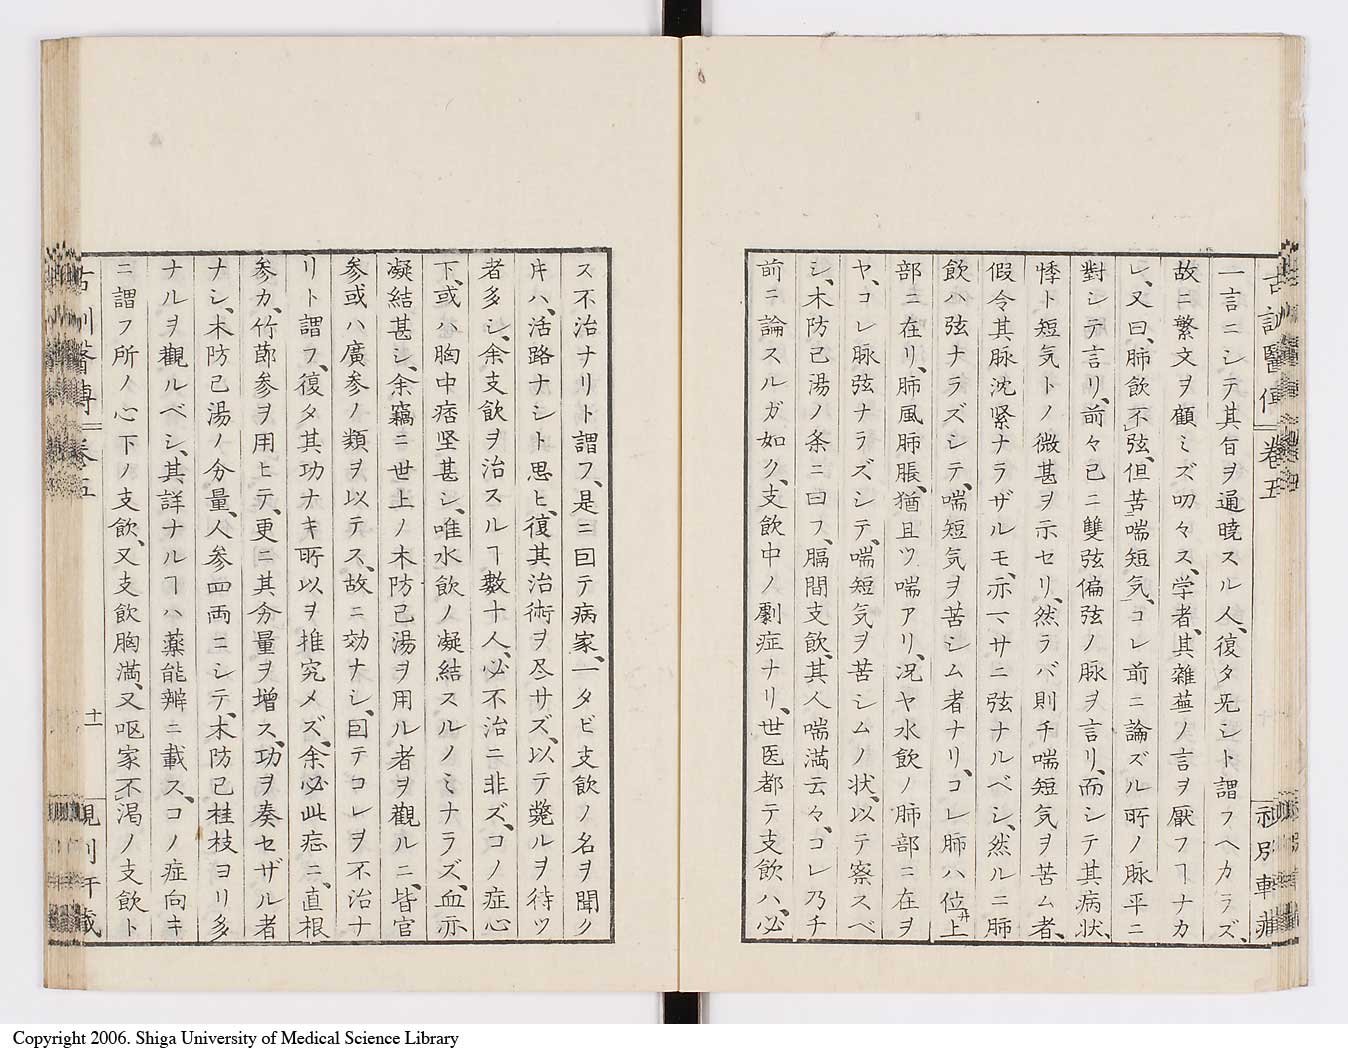 古訓醫傳 卷五
一言ニシテ其旨ヲ通曉スル人、復タ旡シト謂フヘカラズ、
故ニ繁文ヲ顧ミズ叨々ス、学者、其雑蓝ノ言ヲ厭フヿナカ
レ、又曰、肺飲不弦、但苦喘短気、コレ前ニ論ズル所ノ脉平ニ
對シテ言リ、前々已ニ雙弦偏弦ノ脉ヲ言リ、而シテ其病状、
悸ト短気トノ微甚ヲ示セリ、然ラバ則チ喘短気ヲ苦ム者、
假令其脉沈緊ナラザルモ、亦マサニ弦ナルベシ、然ルニ肺
飲ハ弦ナラズシテ、喘短気ヲ苦シム者ナリ、コレ肺ハ位上
部ニ在リ、肺風肺脹、猶且ツ喘アリ、况ヤ水飲ノ肺部ニ在ヲ
ヤ、コレ脉弦ナラズシテ、喘短気ヲ苦シムノ状、以テ察スベ
シ、木防己湯ノ条ニ曰フ、膈間支飲、其人喘満云々、コレ乃チ
前ニ論スルガ如ク、支飲中ノ劇症ナリ、世医都テ支飲ハ、必
ス不治ナリト謂フ、是ニ囙テ病家、一タビ支飲ノ名ヲ聞ク
キハ、活路ナシト思ヒ、復其治術ヲ尽サズ、以テ斃ルヲ待ツ
者多シ、余支飲ヲ治スルヿ數十人、必不治ニ非ズ、コノ症心
下、或ハ胸中痞坚甚シ、唯水飲ノ凝結スルノミナラズ、血亦
凝結甚シ、余竊ニ世上ノ木防己湯ヲ用ル者ヲ觀ルニ、皆官
参或ハ廣参ノ類ヲ以テス、故ニ効ナシ、囙テコレヲ不治ナ
リト謂フ、復タ其功ナキ所以ヲ推究メズ、余必此症ニ、直根
参カ、竹節参ヲ用ヒテ、更ニ其分量ヲ増ス、功ヲ奏セザル者
ナシ、木防己湯ノ分量、人参四両ニシテ、木防己桂枝ヨリ多
ナルヲ觀ルベシ、其詳ナルヿハ薬能辨ニ載ス、コノ症向キ
ニ謂フ所ノ心下ノ支飲、又支飲胸満、又呕家不渇ノ支飲ト
十一
Copyright 2006. Shiga University of Medical Science Library